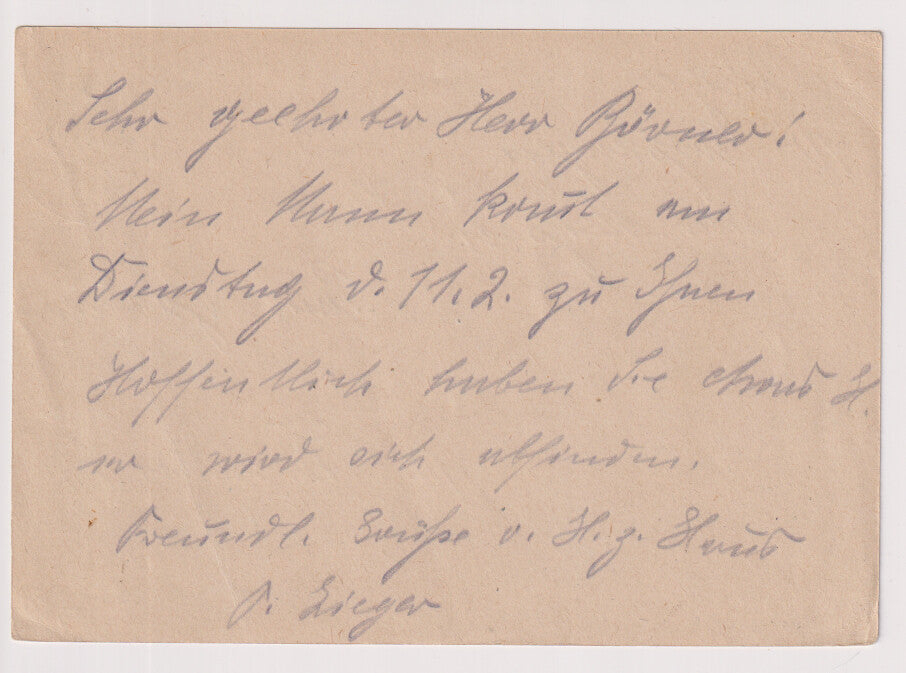 Sehr geehrter Herr Börner!
Mein Mann komt am
Dienstag d. 11.2. zu Ihnen
Hoffentlich haben Sie etwas H.
er wird sich abfinden.
Freundl. Grüße v. H. z. Haus
F. Zieger